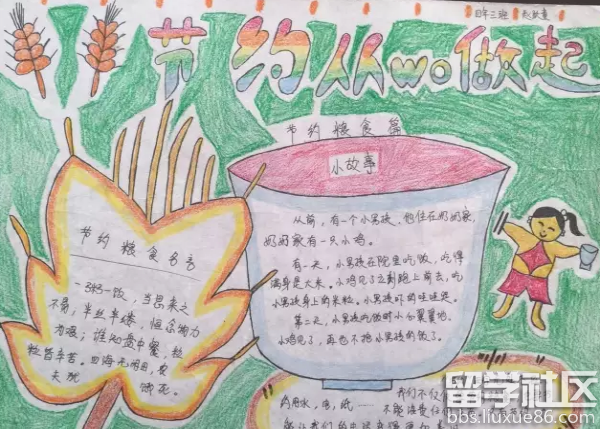 四年二班
节约从wo做起
节约粮食篇
小故事
从前,有一个小男孩,他住在奶奶家,
奶奶家有一只小鸡。
有一天,小男孩在院里吃饭,吃得
满身是大米。小鸡见了立刻跑上前去,吃
小男孩身上的米粒。小男孩吓的哇哇哭。
第二天,小男孩吃饭时小心翼翼地,
小鸡见了,再也不抢小男孩的饭了。
节约粮食名言
一粥一饭,当思来之
不易,半丝半缕,恒念物力
为艰;谁知盘中餐,粒
粒皆辛苦。四海无闲田,农
夫犹饿死。
用水,电,纸
我们不仅
不能浪费
留学社区
bbs.liuxue86.com